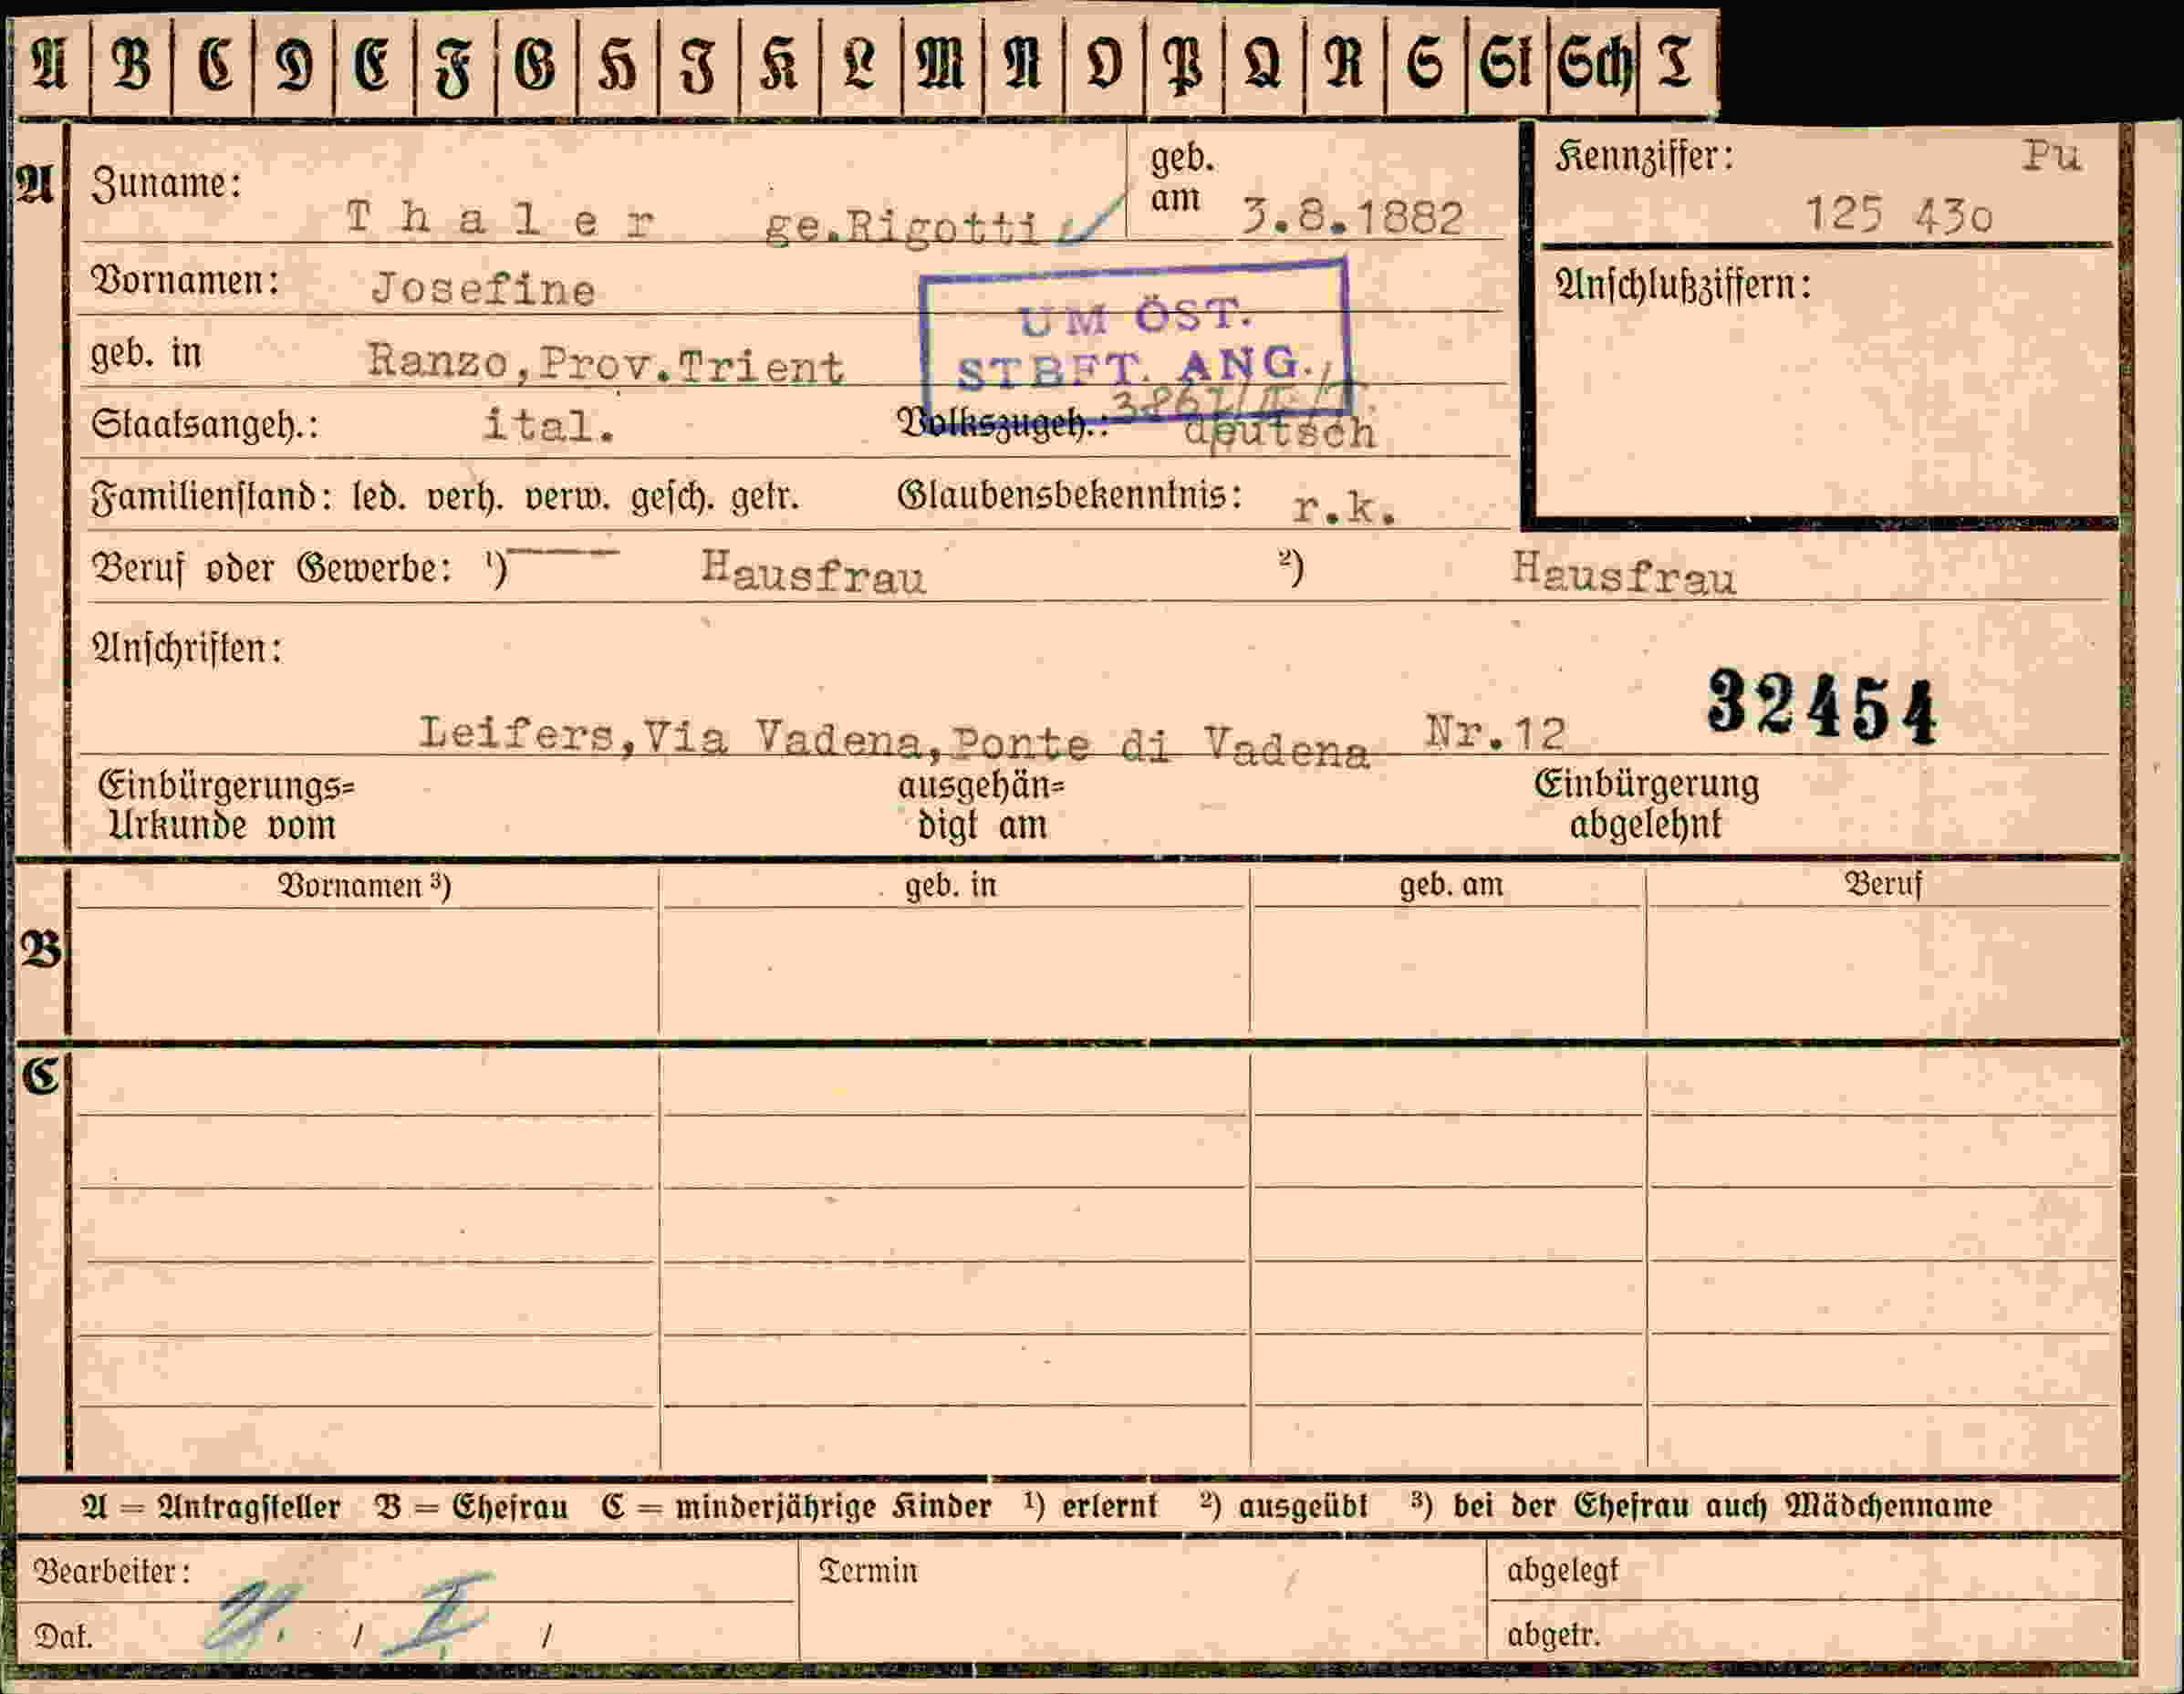 A B C D E F G H I K L M N O P Q R S St Sch T
A Zuname: Thaler ge.Rigotti geb. am 3.8.1882
Kennziffer: Pu
125 43o
Vornamen: Josefine
Anschlußziffern:
UM ÖST.
STBFT. ANG.
geb. in Ranzo,Prov.Trient
Staatsangeh.: ital. Volkszugeh.: deutsch
Familienstand: led. verh. verw. gesch. getr. Glaubensbekenntnis: r.k.
Beruf oder Gewerbe: ¹) Hausfrau ²) Hausfrau
Anschriften:
32454
Leifers,Via Vadena,Ponte di Vadena Nr.12
Einbürgerungs= ausgehän= Einbürgerung
Urkunde vom digt am abgelehnt
Vornamen ³) geb. in geb. am Beruf
B
C
A = Antragsteller B = Ehefrau C = minderjährige Kinder ¹) erlernt ²) ausgeübt ³) bei der Ehefrau auch Mädchenname
Bearbeiter: Termin abgelegt
Dat. / II / abgetr.